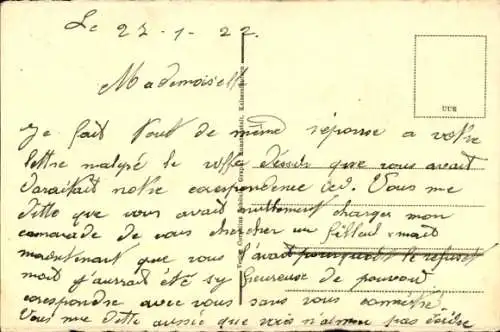 Le 27-1-22.
Mademoiselle
Je fait tout de même réponse a votre
lettre malgré le désir que vous avait
notre corespondence. Vous me
ditte que vous avait nullement charger mon
camarade de vous chercher un filleul mait
maintenant que vous l'avait pourquoi le refuser
moit j'aurait été sy heureuse de pouvoir
corespondre avec vous sans vous connaitre
Vous me ditte aussie que vous n'aime pas écrire